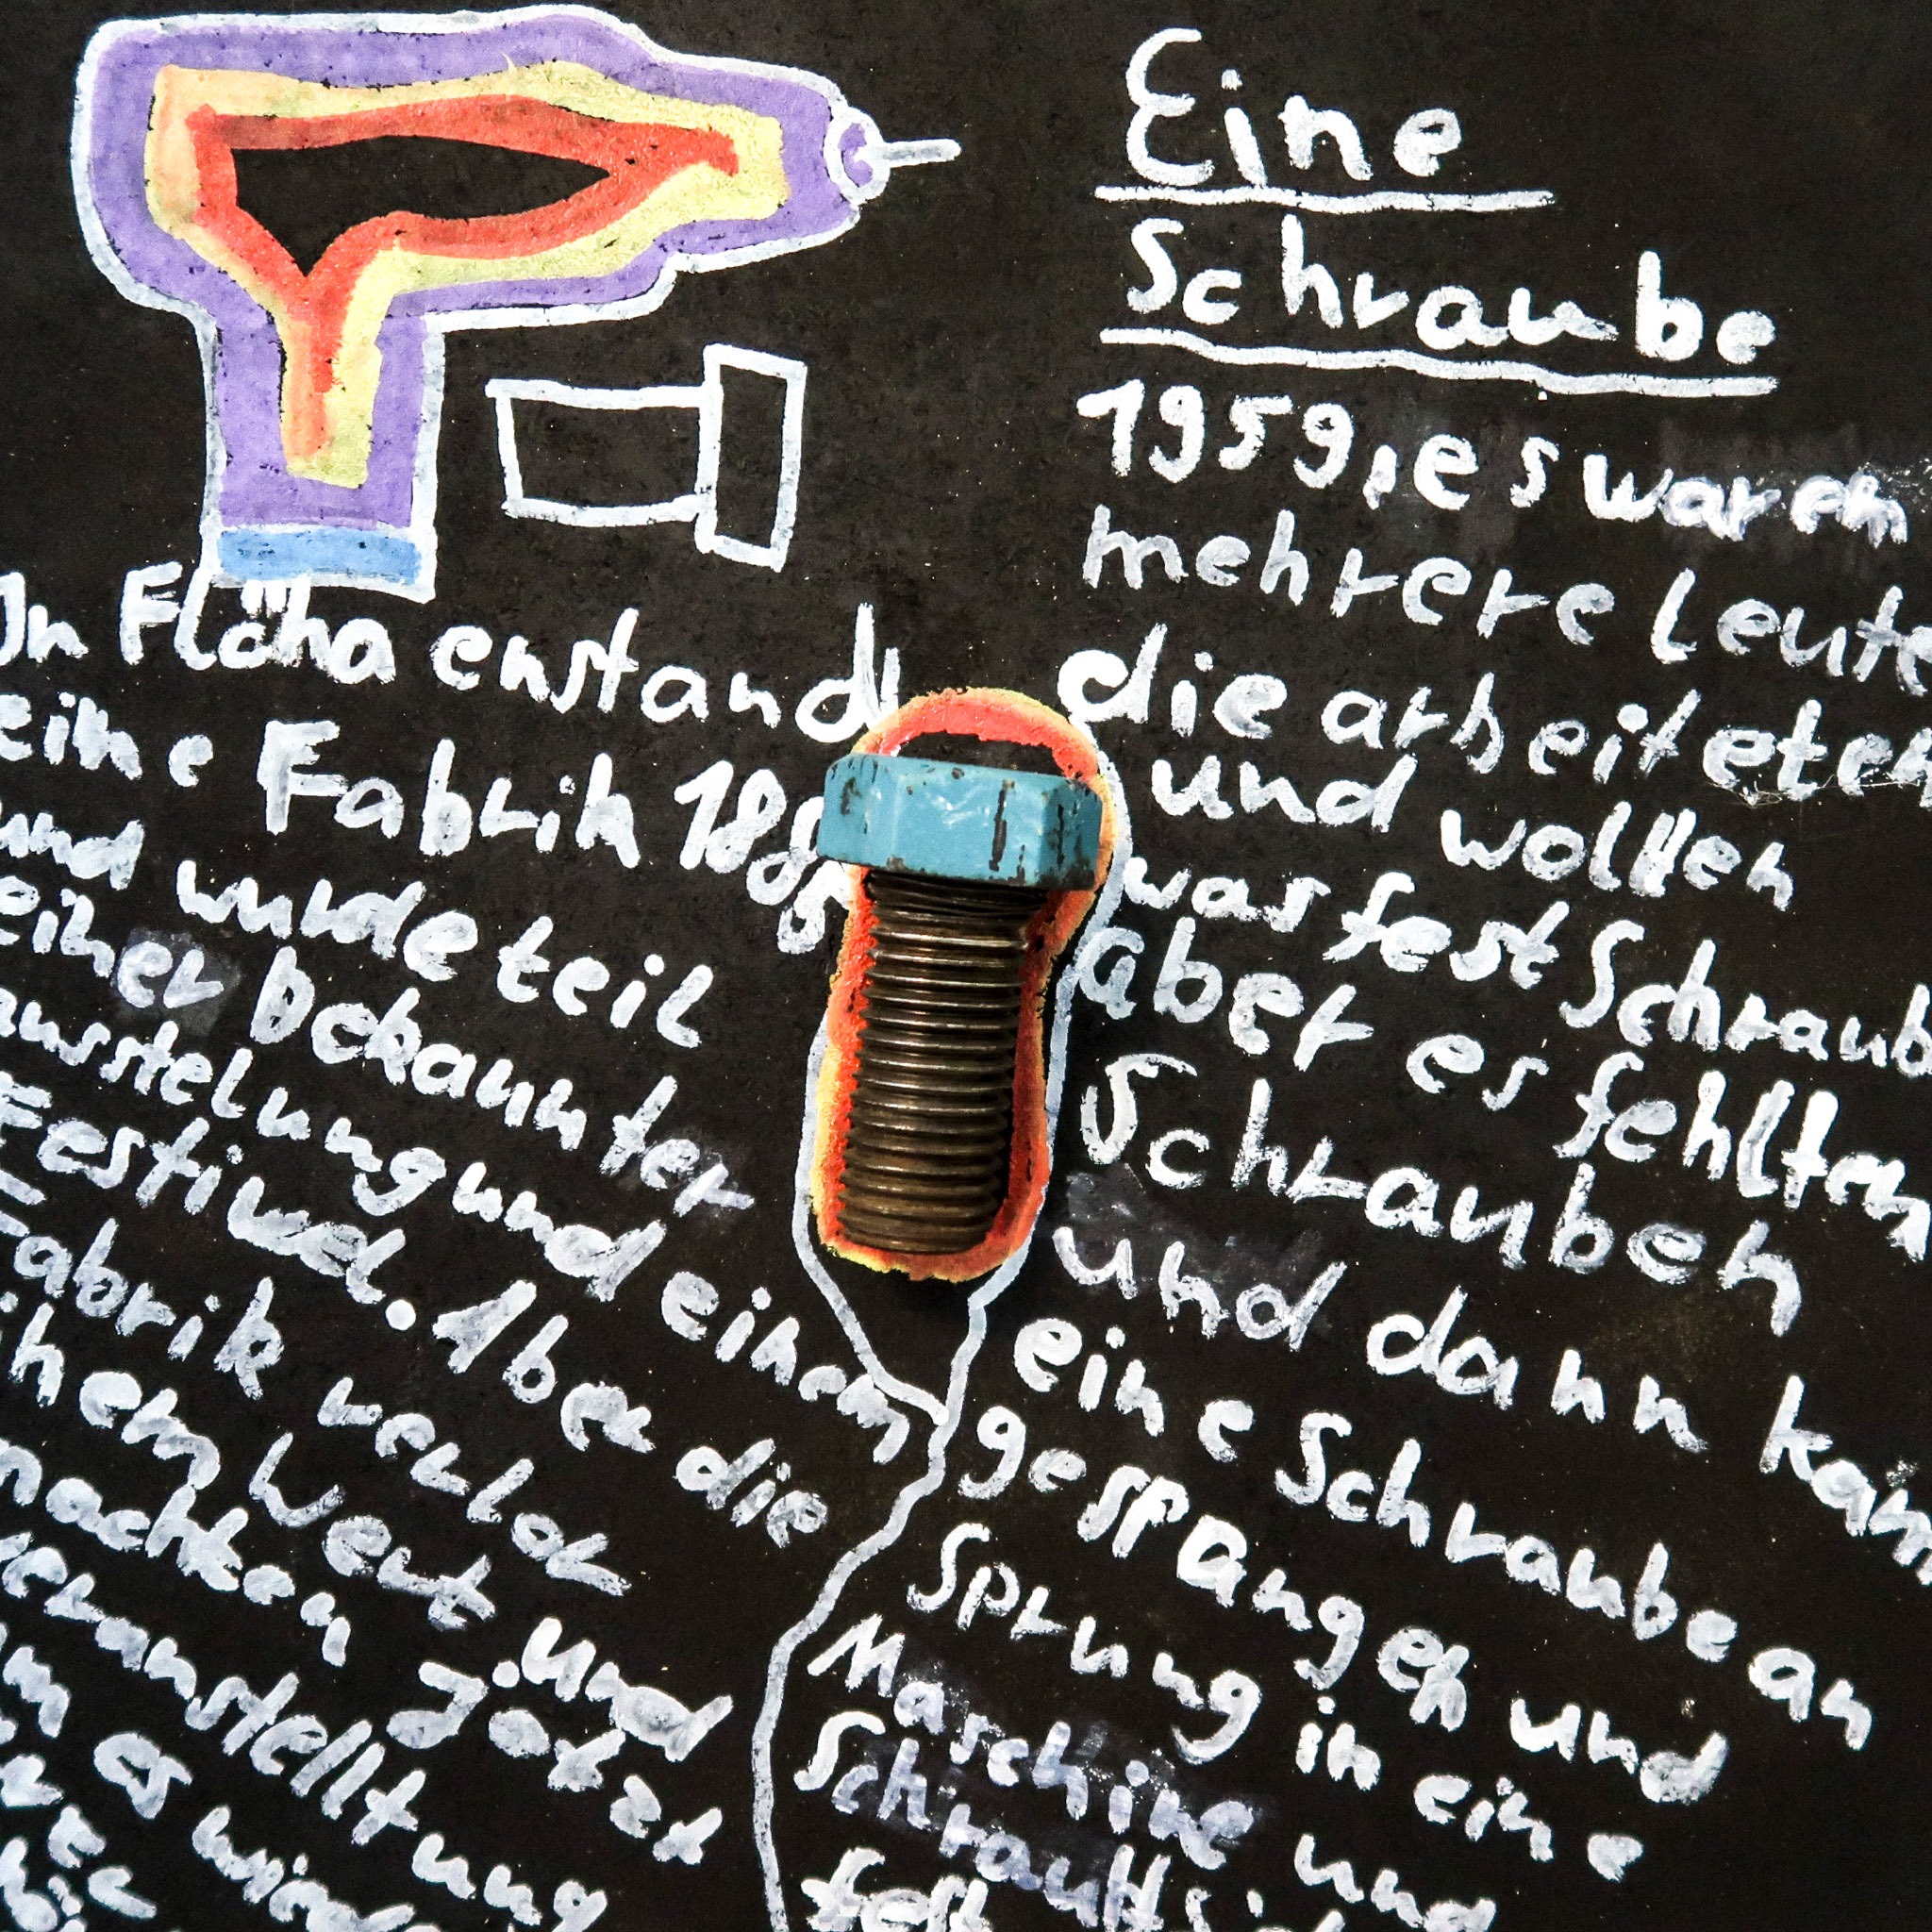 Eine
Schraube
1959, es waren
mehrere Leute
die arbeiteten
und wollten
was fest Schraub
aber es fehlten
Schrauben
und dann kam
eine Schraube an
gesprangen und
Sprung in eine
Maschine und
fest
In Flöha enstand
eine Fabrik
und wurde teil
einer bekannter
ausstelung und einem
Festiwal. Aber die
Fabrik verlor
ihem Wert. Und
machten Jetzt
veranstelltung